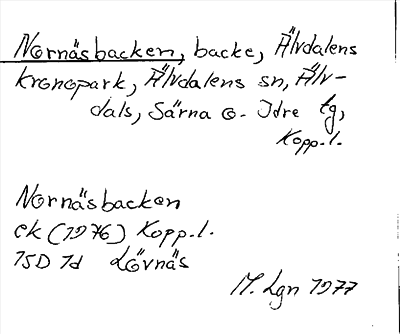 Nornäsbacken, backe, Älvdalens
kronopark, Älvdalens sn, Älv-
dals, Särna o. Idre tg,
Kopp.l.
Nornäsbacken
ek (1976) Kopp.l.
15D 1d Lövnäs
M. Lgn 1977